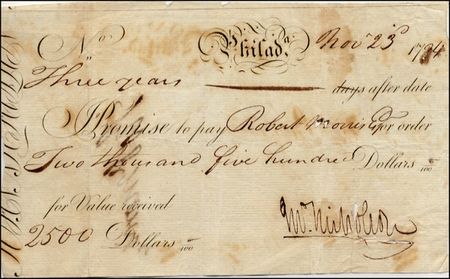 No Philada. Nov 23d 1794
Three years days after date
I Promise to pay Robert Morris Esqr or order
Two thousand five hundred Dollars 100
for Value received
2500 Dollars 100
Jno Nicholson